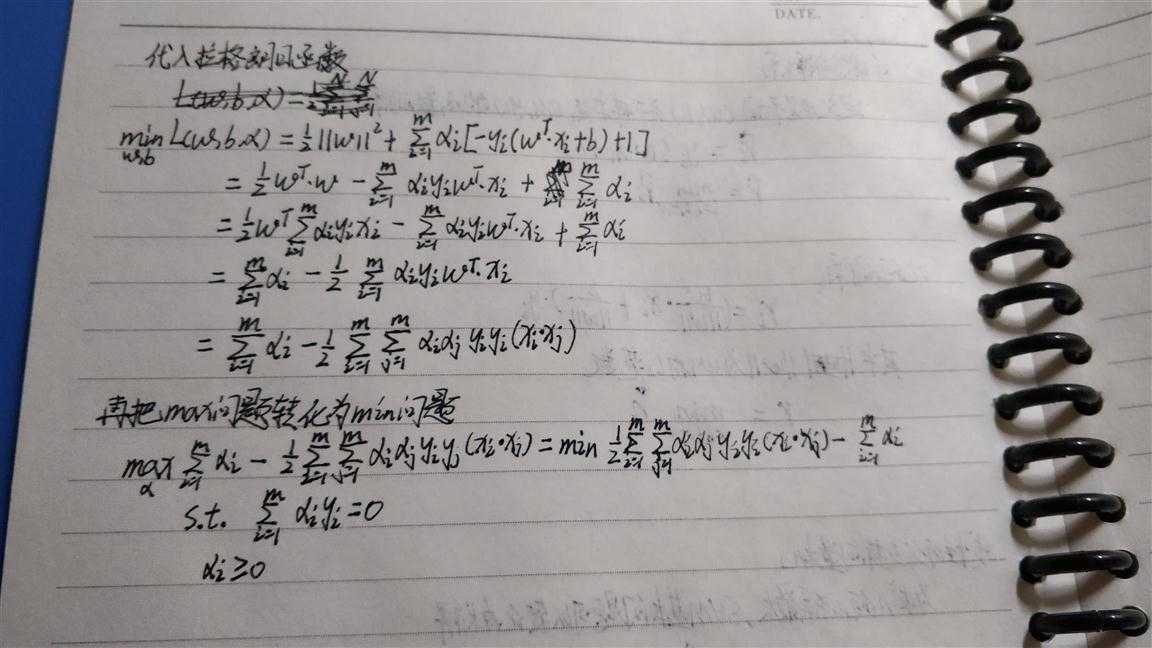 DATE.
代入拉格朗日函数
L(w,b,α) = 1/2 ∑_{i=1}^{N} ∑_{j=1}^{N}
min_{w,b} L(w,b,α) = ½||w||² + ∑_{i=1}^{m} αi[-yi(wᵀ·xi+b)+1]
= ½wᵀ·w - ∑_{i=1}^{m} αiyiwᵀ·xi + ∑_{i=1}^{m} αi
= ½wᵀ∑_{i=1}^{m} αiyixi - ∑_{i=1}^{m} αiyiwᵀ·xi + ∑_{i=1}^{m} αi
= ∑_{i=1}^{m} αi - ½ ∑_{i=1}^{m} αiyiwᵀ·xi
= ∑_{i=1}^{m} αi - ½ ∑_{i=1}^{m} ∑_{j=1}^{m} αiαj yiyi(xi·xj)
再把max问题转化为min问题
max_α ∑_{i=1}^{m} αi - ½ ∑_{i=1}^{m} ∑_{j=1}^{m} αiαjyiyj(xi·xj) = min ½∑_{i=1}^{m} ∑_{j=1}^{m} αiαjyiyi(xi·xj) - ∑_{i=1}^{m} αi
s.t. ∑_{i=1}^{m} αiyi=0
αi≥0